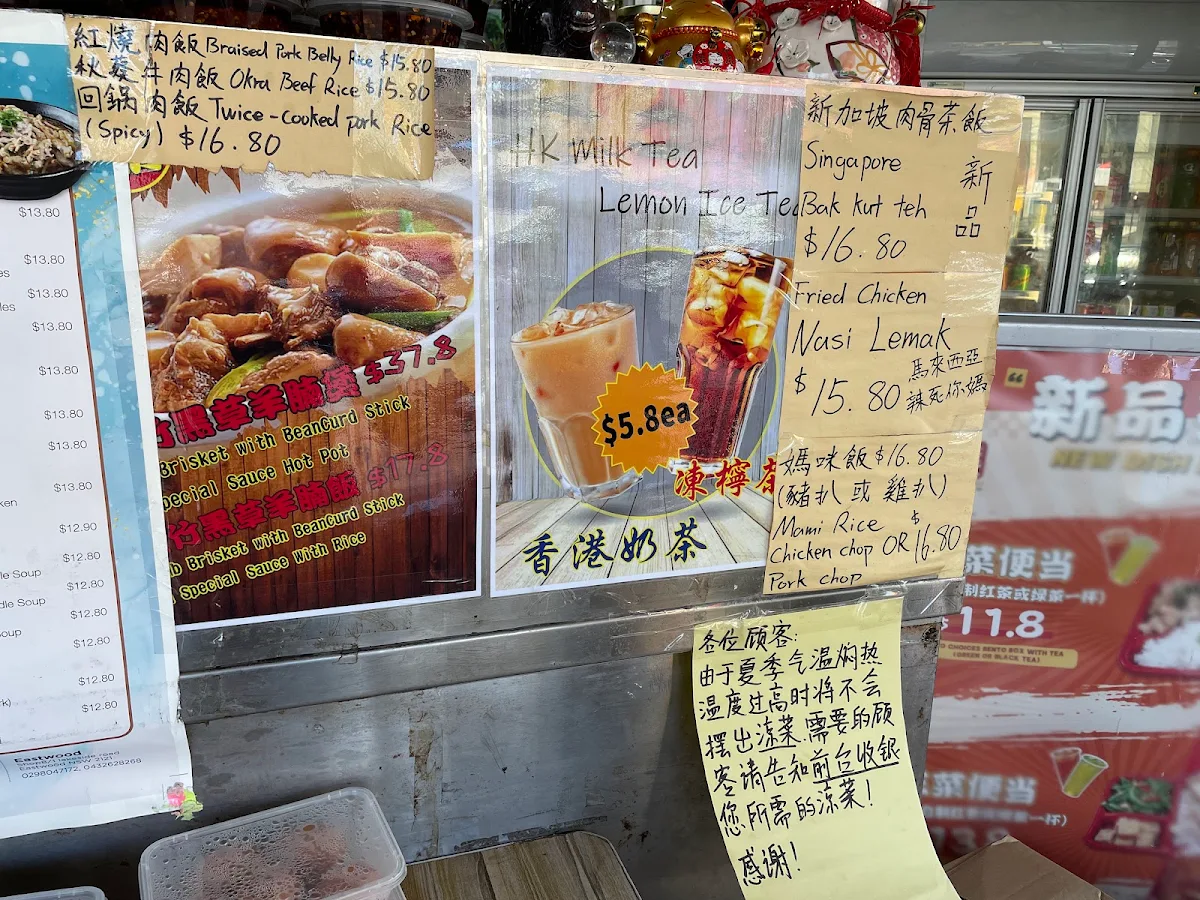 紅燒肉飯 Braised Pork Belly Rice $15.80
秋葵牛肉飯 Okra Beef Rice $15.80
回鍋肉飯 Twice-cooked pork Rice
(Spicy) $16.80
$13.80
$13.80
$13.80
$13.80
$13.80
$13.80
$13.80
$13.80
$12.90
$12.80
$12.80
$12.80
$12.80
$12.80
$12.80
Eastwood
Eastwood NSW 2121
0298047172, 0432628268
竹黑草羊腩煲 $37.8
Brisket with BeanCurd Stick
pecial Sauce Hot Pot
竹黑草羊腩飯 $17.8
b Brisket with BeanCurd Stick
Special Sauce With Rice
HK Milk Tea
Lemon Ice Tea
$5.8ea
凍檸茶
香港奶茶
新加坡肉骨茶飯
Singapore
Bak kut teh
$16.80
新品
Fried Chicken
Nasi Lemak
$15.80
馬來西亞
辣死你媽
媽咪飯 $16.80
(豬扒 或 雞扒)
Mami Rice
Chicken chop OR $16.80
Pork chop
各位顾客:
由于夏季气温焖热
温度过高时将不会
摆出凉菜.需要的顾
客请告知前台收银
您所需的凉菜!
感谢!
新品
NEW DISH
菜便当
制红茶或绿茶一杯)
$11.8
O CHOICES BENTO BOX WITH TEA
(GREEN OR BLACK TEA)
菜便当